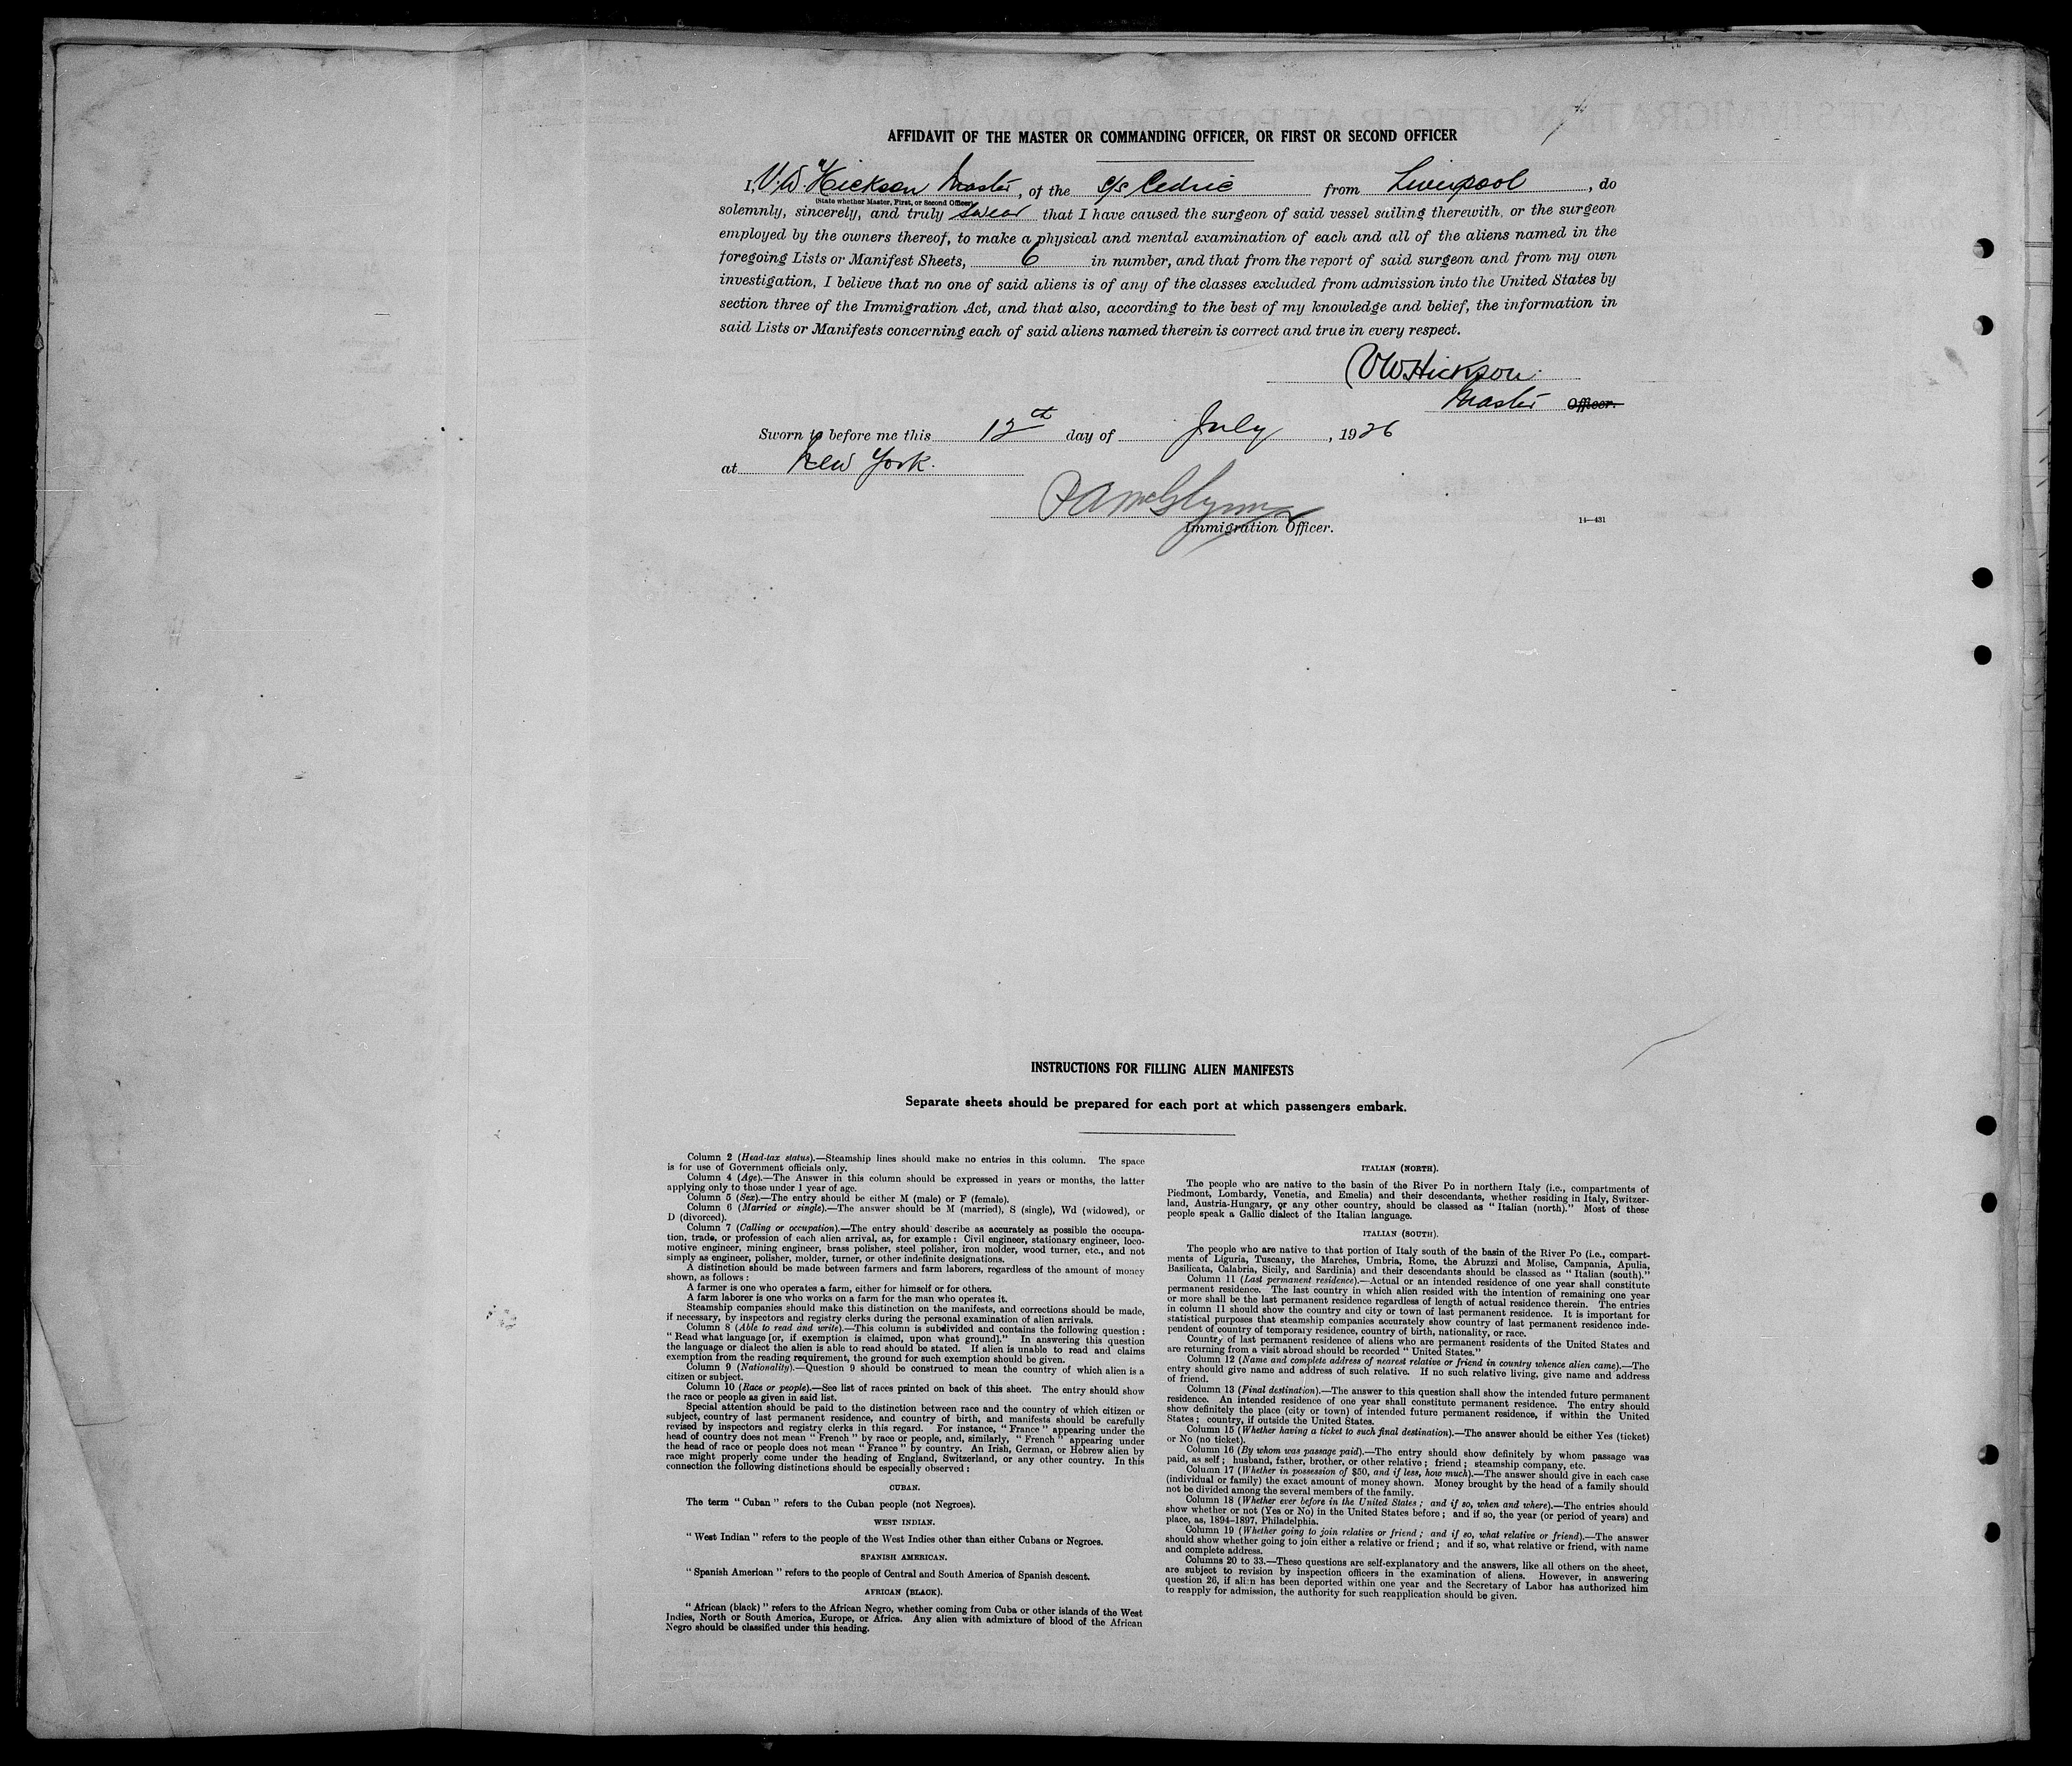 AFFIDAVIT OF THE MASTER OR COMMANDING OFFICER, OR FIRST OR SECOND OFFICER
I, V. W. Hickson Master, of the s/s Cedric from Liverpool, do
(State whether Master, First, or Second Officer)
solemnly, sincerely, and truly swear that I have caused the surgeon of said vessel sailing therewith, or the surgeon
employed by the owners thereof, to make a physical and mental examination of each and all of the aliens named in the
foregoing Lists or Manifest Sheets, 6 in number, and that from the report of said surgeon and from my own
investigation, I believe that no one of said aliens is of any of the classes excluded from admission into the United States by
section three of the Immigration Act, and that also, according to the best of my knowledge and belief, the information in
said Lists or Manifests concerning each of said aliens named therein is correct and true in every respect.
VW Hickson
Master Officer.
Sworn to before me this 12th day of July, 1926
at New York.
Immigration Officer.
14—431
INSTRUCTIONS FOR FILLING ALIEN MANIFESTS
Separate sheets should be prepared for each port at which passengers embark.
Column 2 (Head-tax status).—Steamship lines should make no entries in this column. The space
is for use of Government officials only.
Column 4 (Age).—The Answer in this column should be expressed in years or months, the latter
applying only to those under 1 year of age.
Column 5 (Sex).—The entry should be either M (male) or F (female).
Column 6 (Married or single).—The answer should be M (married), S (single), Wd (widowed), or
D (divorced).
Column 7 (Calling or occupation).—The entry should describe as accurately as possible the occupa-
tion, trade, or profession of each alien arrival, as, for example: Civil engineer, stationary engineer, loco-
motive engineer, mining engineer, brass polisher, steel polisher, iron molder, wood turner, etc., and not
simply as engineer, polisher, molder, turner, or other indefinite designations.
A distinction should be made between farmers and farm laborers, regardless of the amount of money
shown, as follows:
A farmer is one who operates a farm, either for himself or for others.
A farm laborer is one who works on a farm for the man who operates it.
Steamship companies should make this distinction on the manifests, and corrections should be made,
if necessary, by inspectors and registry clerks during the personal examination of alien arrivals.
Column 8 (Able to read and write).—This column is subdivided and contains the following question:
"Read what language [or, if exemption is claimed, upon what ground]." In answering this question
the language or dialect the alien is able to read should be stated. If alien is unable to read and claims
exemption from the reading requirement, the ground for such exemption should be given.
Column 9 (Nationality).—Question 9 should be construed to mean the country of which alien is a
citizen or subject.
Column 10 (Race or people).—See list of races printed on back of this sheet. The entry should show
the race or people as given in said list.
Special attention should be paid to the distinction between race and the country of which citizen or
subject, country of last permanent residence, and country of birth, and manifests should be carefully
revised by inspectors and registry clerks in this regard. For instance, "France" appearing under the
head of country does not mean "French" by race or people, and, similarly, "French" appearing under
the head of race or people does not mean "France" by country. An Irish, German, or Hebrew alien by
race might properly come under the heading of England, Switzerland, or any other country. In this
connection the following distinctions should be especially observed:
CUBAN.
The term "Cuban" refers to the Cuban people (not Negroes).
WEST INDIAN.
"West Indian" refers to the people of the West Indies other than either Cubans or Negroes.
SPANISH AMERICAN.
"Spanish American" refers to the people of Central and South America of Spanish descent.
AFRICAN (BLACK).
"African (black)" refers to the African Negro, whether coming from Cuba or other islands of the West
Indies, North or South America, Europe, or Africa. Any alien with admixture of blood of the African
Negro should be classified under this heading.
ITALIAN (NORTH).
The people who are native to the basin of the River Po in northern Italy (i.e., compartments of
Piedmont, Lombardy, Venetia, and Emelia) and their descendants, whether residing in Italy, Switzer-
land, Austria-Hungary, or any other country, should be classed as "Italian (north)." Most of these
people speak a Gallic dialect of the Italian language.
ITALIAN (SOUTH).
The people who are native to that portion of Italy south of the basin of the River Po (i.e., compart-
ments of Liguria, Tuscany, the Marches, Umbria, Rome, the Abruzzi and Molise, Campania, Apulia,
Basilicata, Calabria, Sicily, and Sardinia) and their descendants should be classed as "Italian (south)."
Column 11 (Last permanent residence).—Actual or an intended residence of one year shall constitute
permanent residence. The last country in which alien resided with the intention of remaining one year
or more shall be the last permanent residence regardless of length of actual residence therein. The entries
in column 11 should show the country and city or town of last permanent residence. It is important for
statistical purposes that steamship companies accurately show country of last permanent residence inde-
pendent of country of temporary residence, country of birth, nationality, or race.
Country of last permanent residence of aliens who are permanent residents of the United States and
are returning from a visit abroad should be recorded "United States."
Column 12 (Name and complete address of nearest relative or friend in country whence alien came).—The
entry should give name and address of such relative. If no such relative living, give name and address
of friend.
Column 13 (Final destination).—The answer to this question shall show the intended future permanent
residence. An intended residence of one year shall constitute permanent residence. The entry should
show definitely the place (city or town) of intended future permanent residence, if within the United
States; country, if outside the United States.
Column 15 (Whether having a ticket to such final destination).—The answer should be either Yes (ticket)
or No (no ticket).
Column 16 (By whom was passage paid).—The entry should show definitely by whom passage was
paid, as self; husband, father, brother, or other relative; friend; steamship company, etc.
Column 17 (Whether in possession of $50, and if less, how much).—The answer should give in each case
(individual or family) the exact amount of money shown. Money brought by the head of a family should
not be divided among the several members of the family.
Column 18 (Whether ever before in the United States; and if so, when and where).—The entries should
show whether or not (Yes or No) in the United States before; and if so, the year (or period of years) and
place, as, 1894-1897, Philadelphia.
Column 19 (Whether going to join relative or friend; and if so, what relative or friend).—The answer
should show whether going to join either a relative or friend; and if so, what relative or friend, with name
and complete address.
Columns 20 to 33.—These questions are self-explanatory and the answers, like all others on the sheet,
are subject to revision by inspection officers in the examination of aliens. However, in answering
question 26, if alien has been deported within one year and the Secretary of Labor has authorized him
to reapply for admission, the authority for such reapplication should be given.